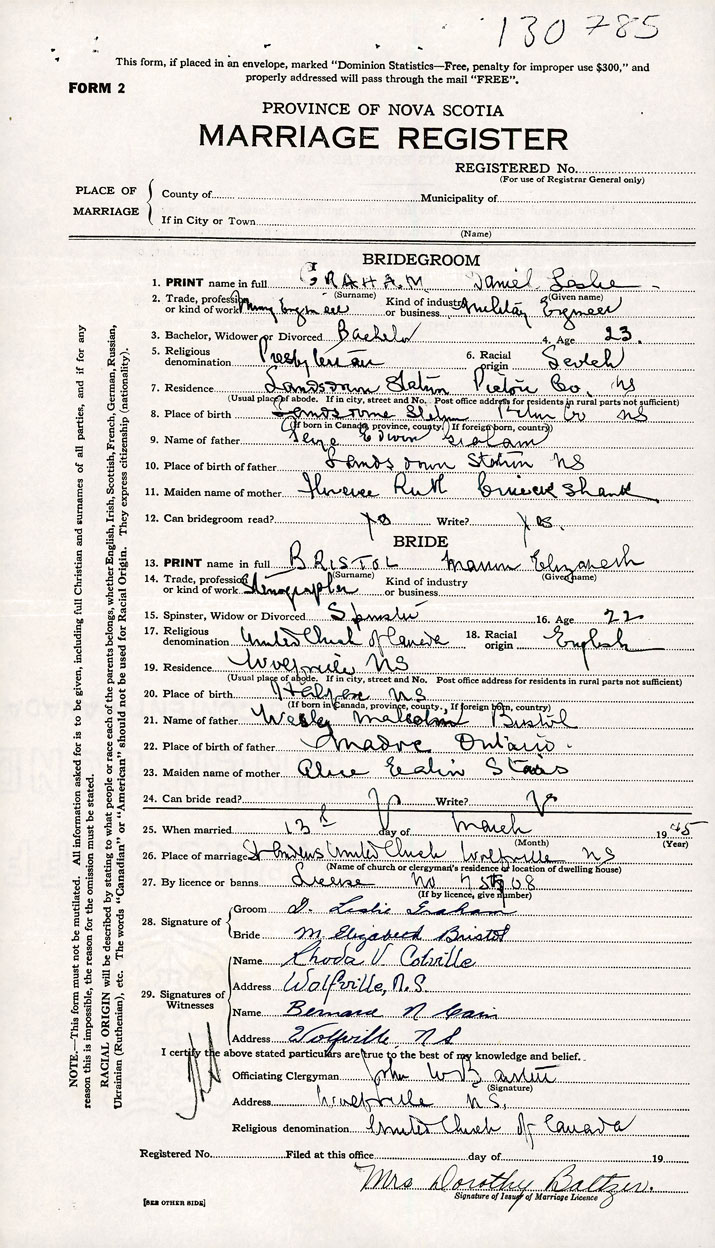 130785
This form, if placed in an envelope, marked "Dominion Statistics—Free, penalty for improper use $300," and
properly addressed will pass through the mail "FREE".
FORM 2
PROVINCE OF NOVA SCOTIA
MARRIAGE REGISTER
REGISTERED No.
(For use of Registrar General only)
PLACE OF MARRIAGE
County of Municipality of
If in City or Town
(Name)
BRIDEGROOM
1. PRINT name in full GRAHAM Daniel Leslie
(Surname) (Given name)
2. Trade, profession or kind of work Engineer Kind of industry or business Military Engineer
3. Bachelor, Widower or Divorced Bachelor 4. Age 23.
5. Religious denomination Presbyterian 6. Racial origin Scotch
7. Residence Landsdown Station Pictou Co. NS
(Usual place of abode. If in city, street and No. Post office address for residents in rural parts not sufficient)
8. Place of birth Landsdowne Station Pictou Co NS
(If born in Canada, province, county. If foreign born, country)
9. Name of father Edwin Graham
10. Place of birth of father Landsdown Station NS
11. Maiden name of mother Florence Ruth Cruickshank
12. Can bridegroom read? yes Write? yes.
BRIDE
13. PRINT name in full BRISTOL Marion Elizabeth
(Surname) (Given name)
14. Trade, profession or kind of work Stenographer Kind of industry or business
15. Spinster, Widow or Divorced Spinster 16. Age 22
17. Religious denomination United Church of Canada 18. Racial origin English
19. Residence Wolfville NS
(Usual place of abode. If in city, street and No. Post office address for residents in rural parts not sufficient)
20. Place of birth Halifax NS
(If born in Canada, province, county. If foreign born, country)
21. Name of father Wesley Malcolm Bristol
22. Place of birth of father Madoc Ontario.
23. Maiden name of mother Alice Stairs
24. Can bride read? Write?
25. When married 13th day of March 1945
(Month) (Year)
26. Place of marriage St Andrews United Church Wolfville NS
(Name of church or clergyman's residence or location of dwelling house)
27. By licence or banns License No
(If by licence, give number)
28. Signature of
Groom D. Leslie Graham
Bride M. Elizabeth Bristol
29. Signatures of Witnesses
Name Rhoda V. Colville
Address Wolfville, N.S.
Name Bernard N Cain
Address Wolfville NS
I certify the above stated particulars are true to the best of my knowledge and belief.
Officiating Clergyman John W
(Signature)
Address Wolfville N.S.
Religious denomination United Church of Canada
Registered No. Filed at this office day of 19
Mrs Dorothy Baltzer.
Signature of Issuer of Marriage Licence
[SEE OTHER SIDE]
NOTE.—This form must not be mutilated. All information asked for is to be given, including full Christian and surnames of all parties, and if for any
reason this is impossible, the reason for the omission must be stated.
RACIAL ORIGIN will be described by stating to what people or race each of the parents belongs, whether English, Irish, Scottish, French, German, Russian,
Ukrainian (Ruthenian), etc. The words "Canadian" or "American" should not be used for Racial Origin. They express citizenship (nationality).